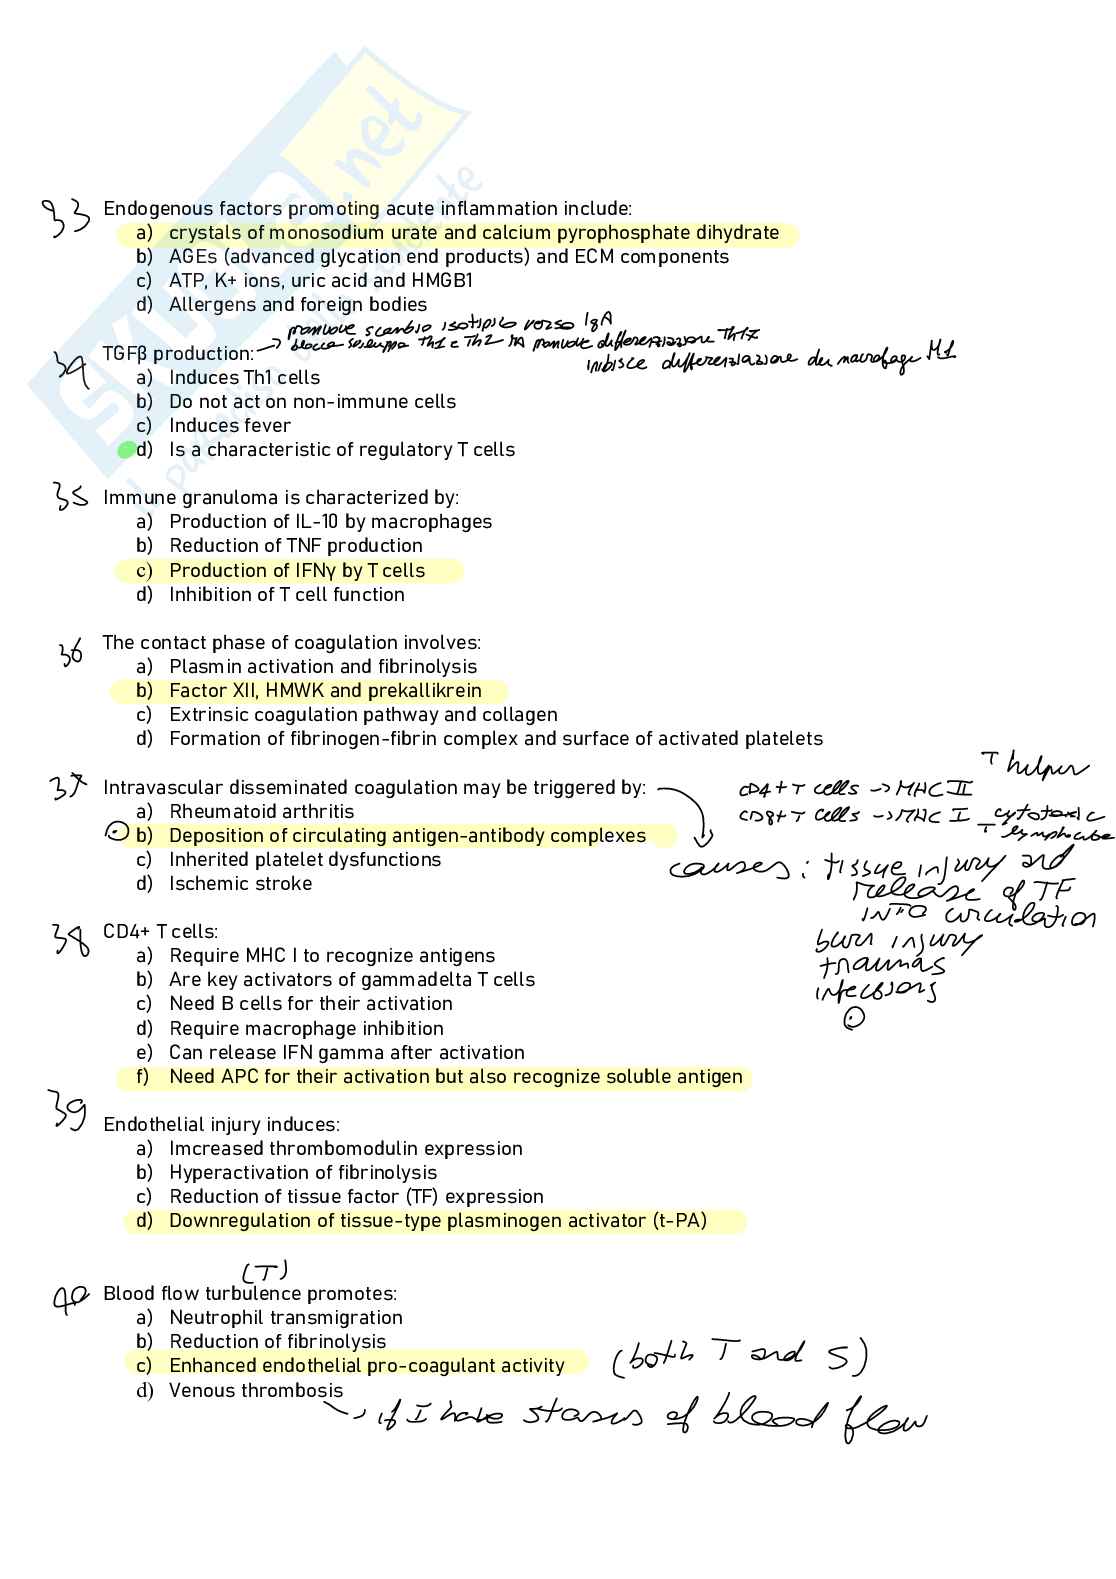 SKUOLA.net
il paradiso dello studente
33 Endogenous factors promoting acute inflammation include:
a) crystals of monosodium urate and calcium pyrophosphate dihydrate
b) AGEs (advanced glycation end products) and ECM components
c) ATP, K+ ions, uric acid and HMGB1
d) Allergens and foreign bodies
promuove scambio isotipico verso IgA
34 TGFβ production: → blocca sviluppo Th1 e Th2 MA promuove differenziazione Th17
inibisce differenziazione dei macrofage M1
a) Induces Th1 cells
b) Do not act on non-immune cells
c) Induces fever
d) Is a characteristic of regulatory T cells
35 Immune granuloma is characterized by:
a) Production of IL-10 by macrophages
b) Reduction of TNF production
c) Production of IFNγ by T cells
d) Inhibition of T cell function
36 The contact phase of coagulation involves:
a) Plasmin activation and fibrinolysis
b) Factor XII, HMWK and prekallikrein
c) Extrinsic coagulation pathway and collagen
d) Formation of fibrinogen-fibrin complex and surface of activated platelets
37 Intravascular disseminated coagulation may be triggered by:
a) Rheumatoid arthritis
b) Deposition of circulating antigen-antibody complexes
c) Inherited platelet dysfunctions
d) Ischemic stroke
T helper
CD4+ T cells → MHC II
CD8+ T cells → MHC I - cytotoxic
T lymphocite
causes: tissue injury and
release of TF
INTO circulation
burn injury
traumas
infections
38 CD4+ T cells:
a) Require MHC I to recognize antigens
b) Are key activators of gammadelta T cells
c) Need B cells for their activation
d) Require macrophage inhibition
e) Can release IFN gamma after activation
f) Need APC for their activation but also recognize soluble antigen
39 Endothelial injury induces:
a) Imcreased thrombomodulin expression
b) Hyperactivation of fibrinolysis
c) Reduction of tissue factor (TF) expression
d) Downregulation of tissue-type plasminogen activator (t-PA)
(T)
40 Blood flow turbulence promotes:
a) Neutrophil transmigration
b) Reduction of fibrinolysis
c) Enhanced endothelial pro-coagulant activity (both T and S)
d) Venous thrombosis
→ if I have stasis of blood flow